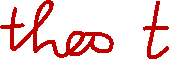 theo t